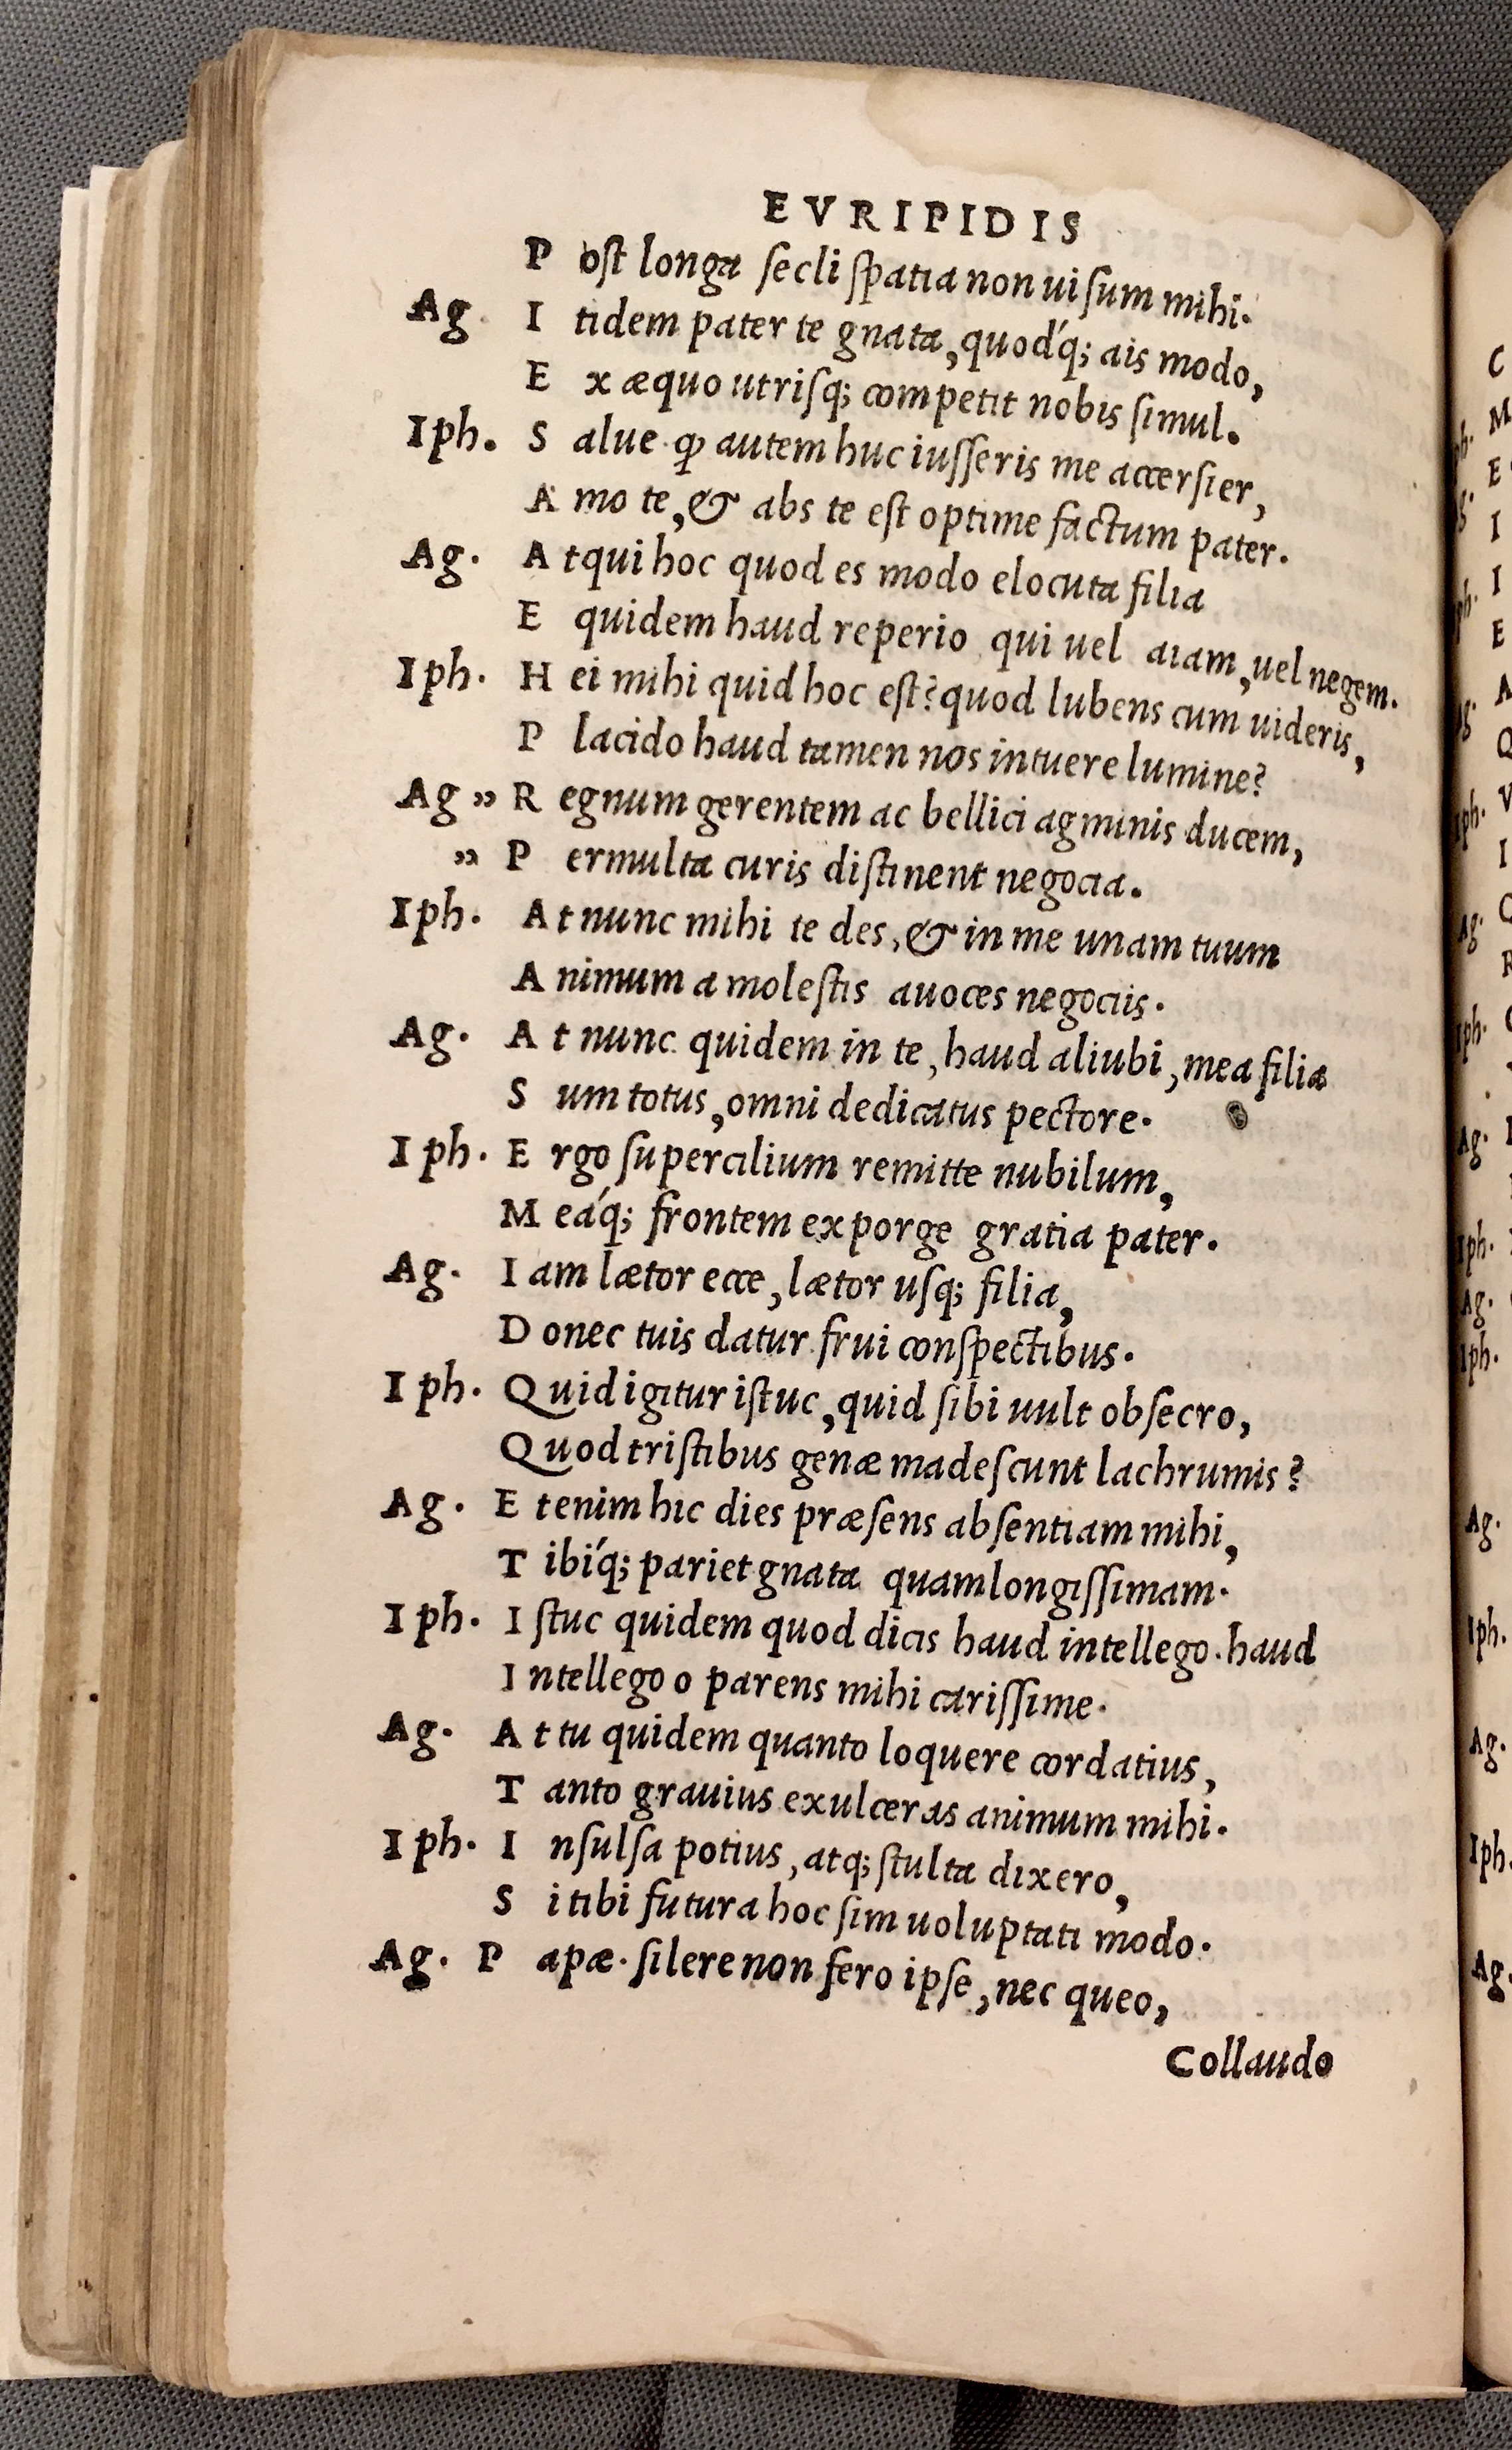 EVRIPIDIS
P oſt longa ſecli ſpatia non uiſum mihi.
Ag. I tidem pater te gnata, quod'q; ais modo,
E x æquo utriſq; competit nobis ſimul.
Iph. S alue. ꝙ autem huc iuſſeris me accerſier,
A mo te, & abs te eſt optime factum pater.
Ag. A tqui hoc quod es modo elocuta filia
E quidem haud reperio qui uel aiam, uel negem.
Iph. H ei mihi quid hoc eſt? quod lubens cum uideris,
P lacido haud tamen nos intuere lumine?
Ag „ R egnum gerentem ac bellici agminis ducem,
„ P ermulta curis diſtinent negocia.
Iph. A t nunc mihi te des, & in me unam tuum
A nimum a moleſtis auoces negociis.
Ag. A t nunc quidem in te, haud aliubi, mea filia
S um totus, omni dedicatus pectore.
Iph. E rgo ſupercilium remitte nubilum,
M eáq; frontem exporge gratia pater.
Ag. I am lætor ecce, lætor uſq; filia,
D onec tuis datur frui conſpectibus.
Iph. Q uid igitur iſtuc, quid ſibi uult obſecro,
Q uod triſtibus genæ madeſcunt lachrumis?
Ag. E tenim hic dies præſens abſentiam mihi,
T ibíq; pariet gnata quam longiſſimam.
Iph. I ſtuc quidem quod dicis haud intellego. haud
I ntellego o parens mihi cariſſime.
Ag. A t tu quidem quanto loquere cordatius,
T anto grauius exulceras animum mihi.
Iph. I nſulſa potius, atq; ſtulta dixero,
S i tibi futura hoc ſim uoluptati modo.
Ag. P apæ. ſilere non fero ipſe, nec queo,
Collaudo
C
M
E
I
I
E
A
Q
V
I
Q
R
Iph.
Ag.
Iph.
Ag.
Iph.
Ag.
Iph.
Ag.
Iph.
Ag.